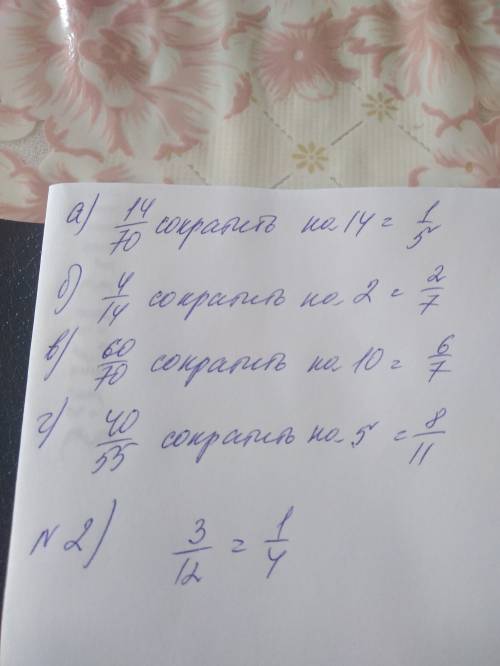 а) 14/70 сократить на 14 = 1/5
б) 4/14 сократить на 2 = 2/7
в) 60/70 сократить на 10 = 6/7
г) 40/55 сократить на 5 = 8/11
N 2) 3/12 = 1/4